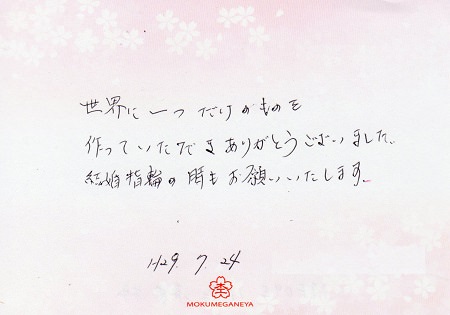 世界に一つだけのものを
作っていただきありがとうございました。
結婚指輪の時もお願いいたします。
H29. 7. 24
MOKUMEGANEYA